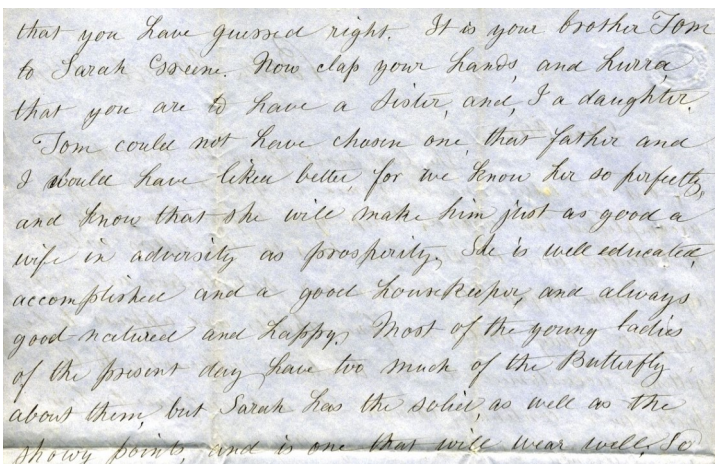 that you have guessed right. It is your brother Tom
to Sarah Greene. Now clap your hands, and hurra,
that you are to have a sister, and, I a daughter.
Tom could not have chosen one, that father and
I should have liked better, for we know her so perfectly,
and know that she will make him just as good a
wife in adversity as prosperity. She is well educated,
accomplished and a good housekeeper, and always
good natured and happy. Most of the young ladies
of the present day have too much of the Butterfly
about them, but Sarah has the solid, as well as the
showy points, and is one that will wear well. So